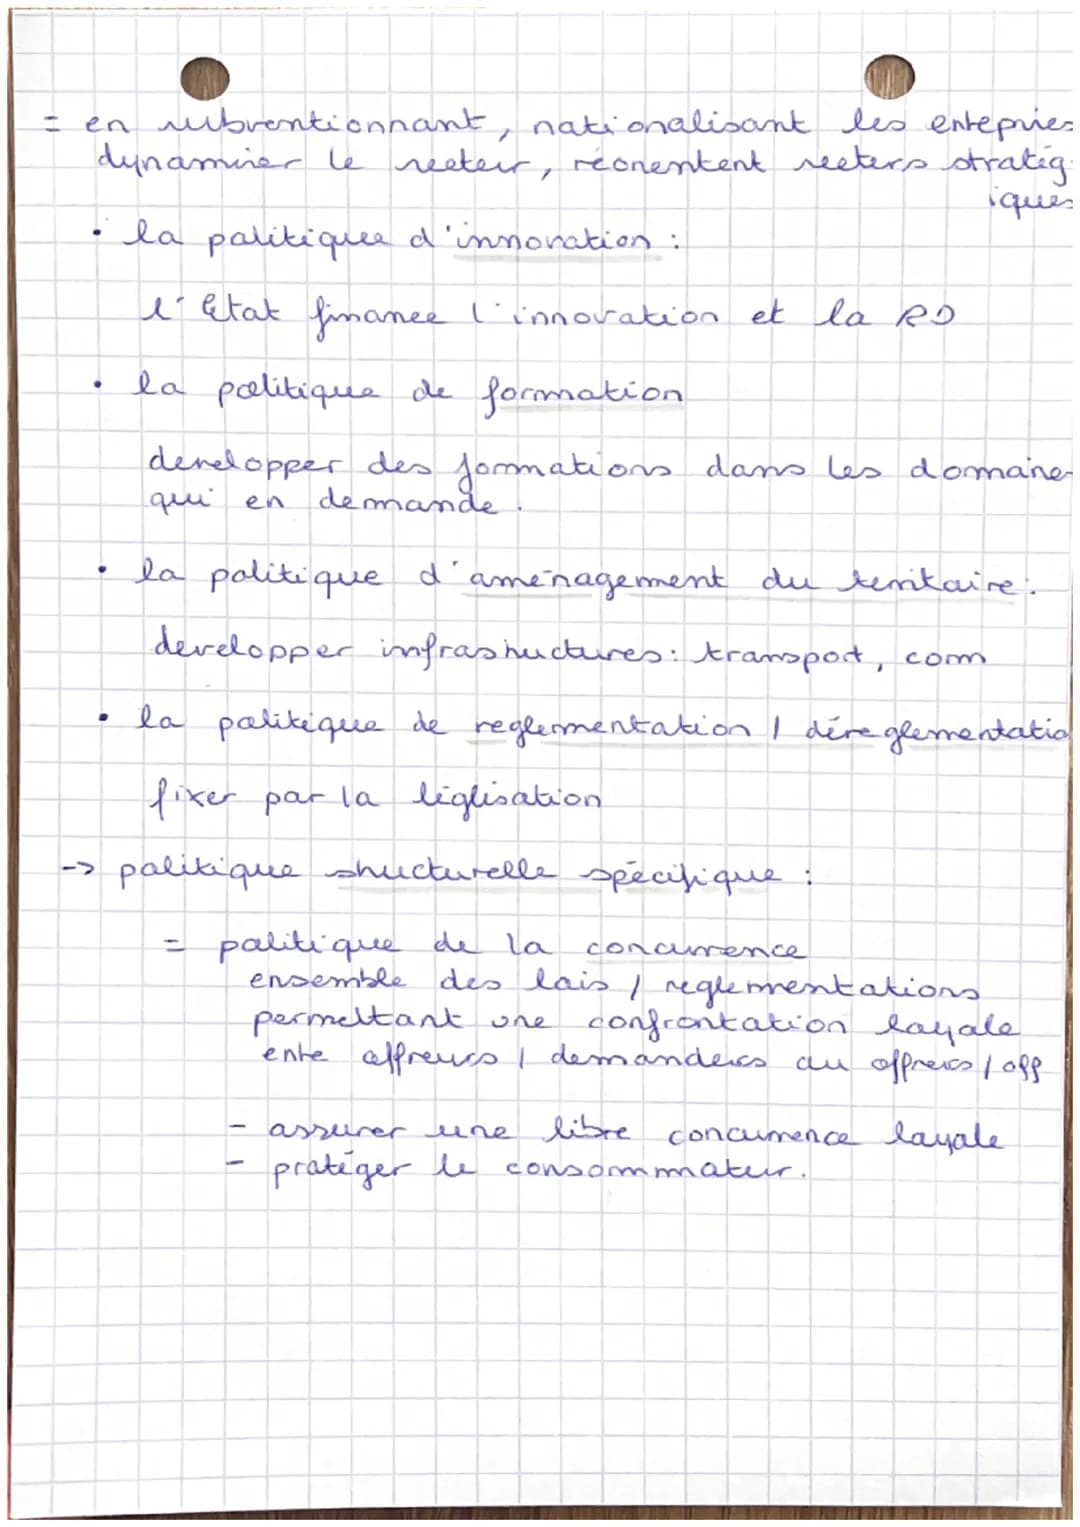 = en subventionnant, nationalisant les entepries
dynamiser le secteur, réorientent secters stratég
iques
• la politiques d'innovation :
l'Etat finance l'innovation et la RD
• la politique de formation
developper des formations dans les domaine
qui en demande.
• la politique d'aménagement du territoire :
developper infrastructures : transport, com
• la politique de reglementation / déreglementatio
fixer par la léglisation
-> politique structurelle spécifique :
= politique de la concurrence
ensemble des lois / reglementations
permettant une confrontation loyale
entre offreurs / demandeurs ou offreurs / off
- assurer une libre concurrence loyale
- protéger le consommateur.